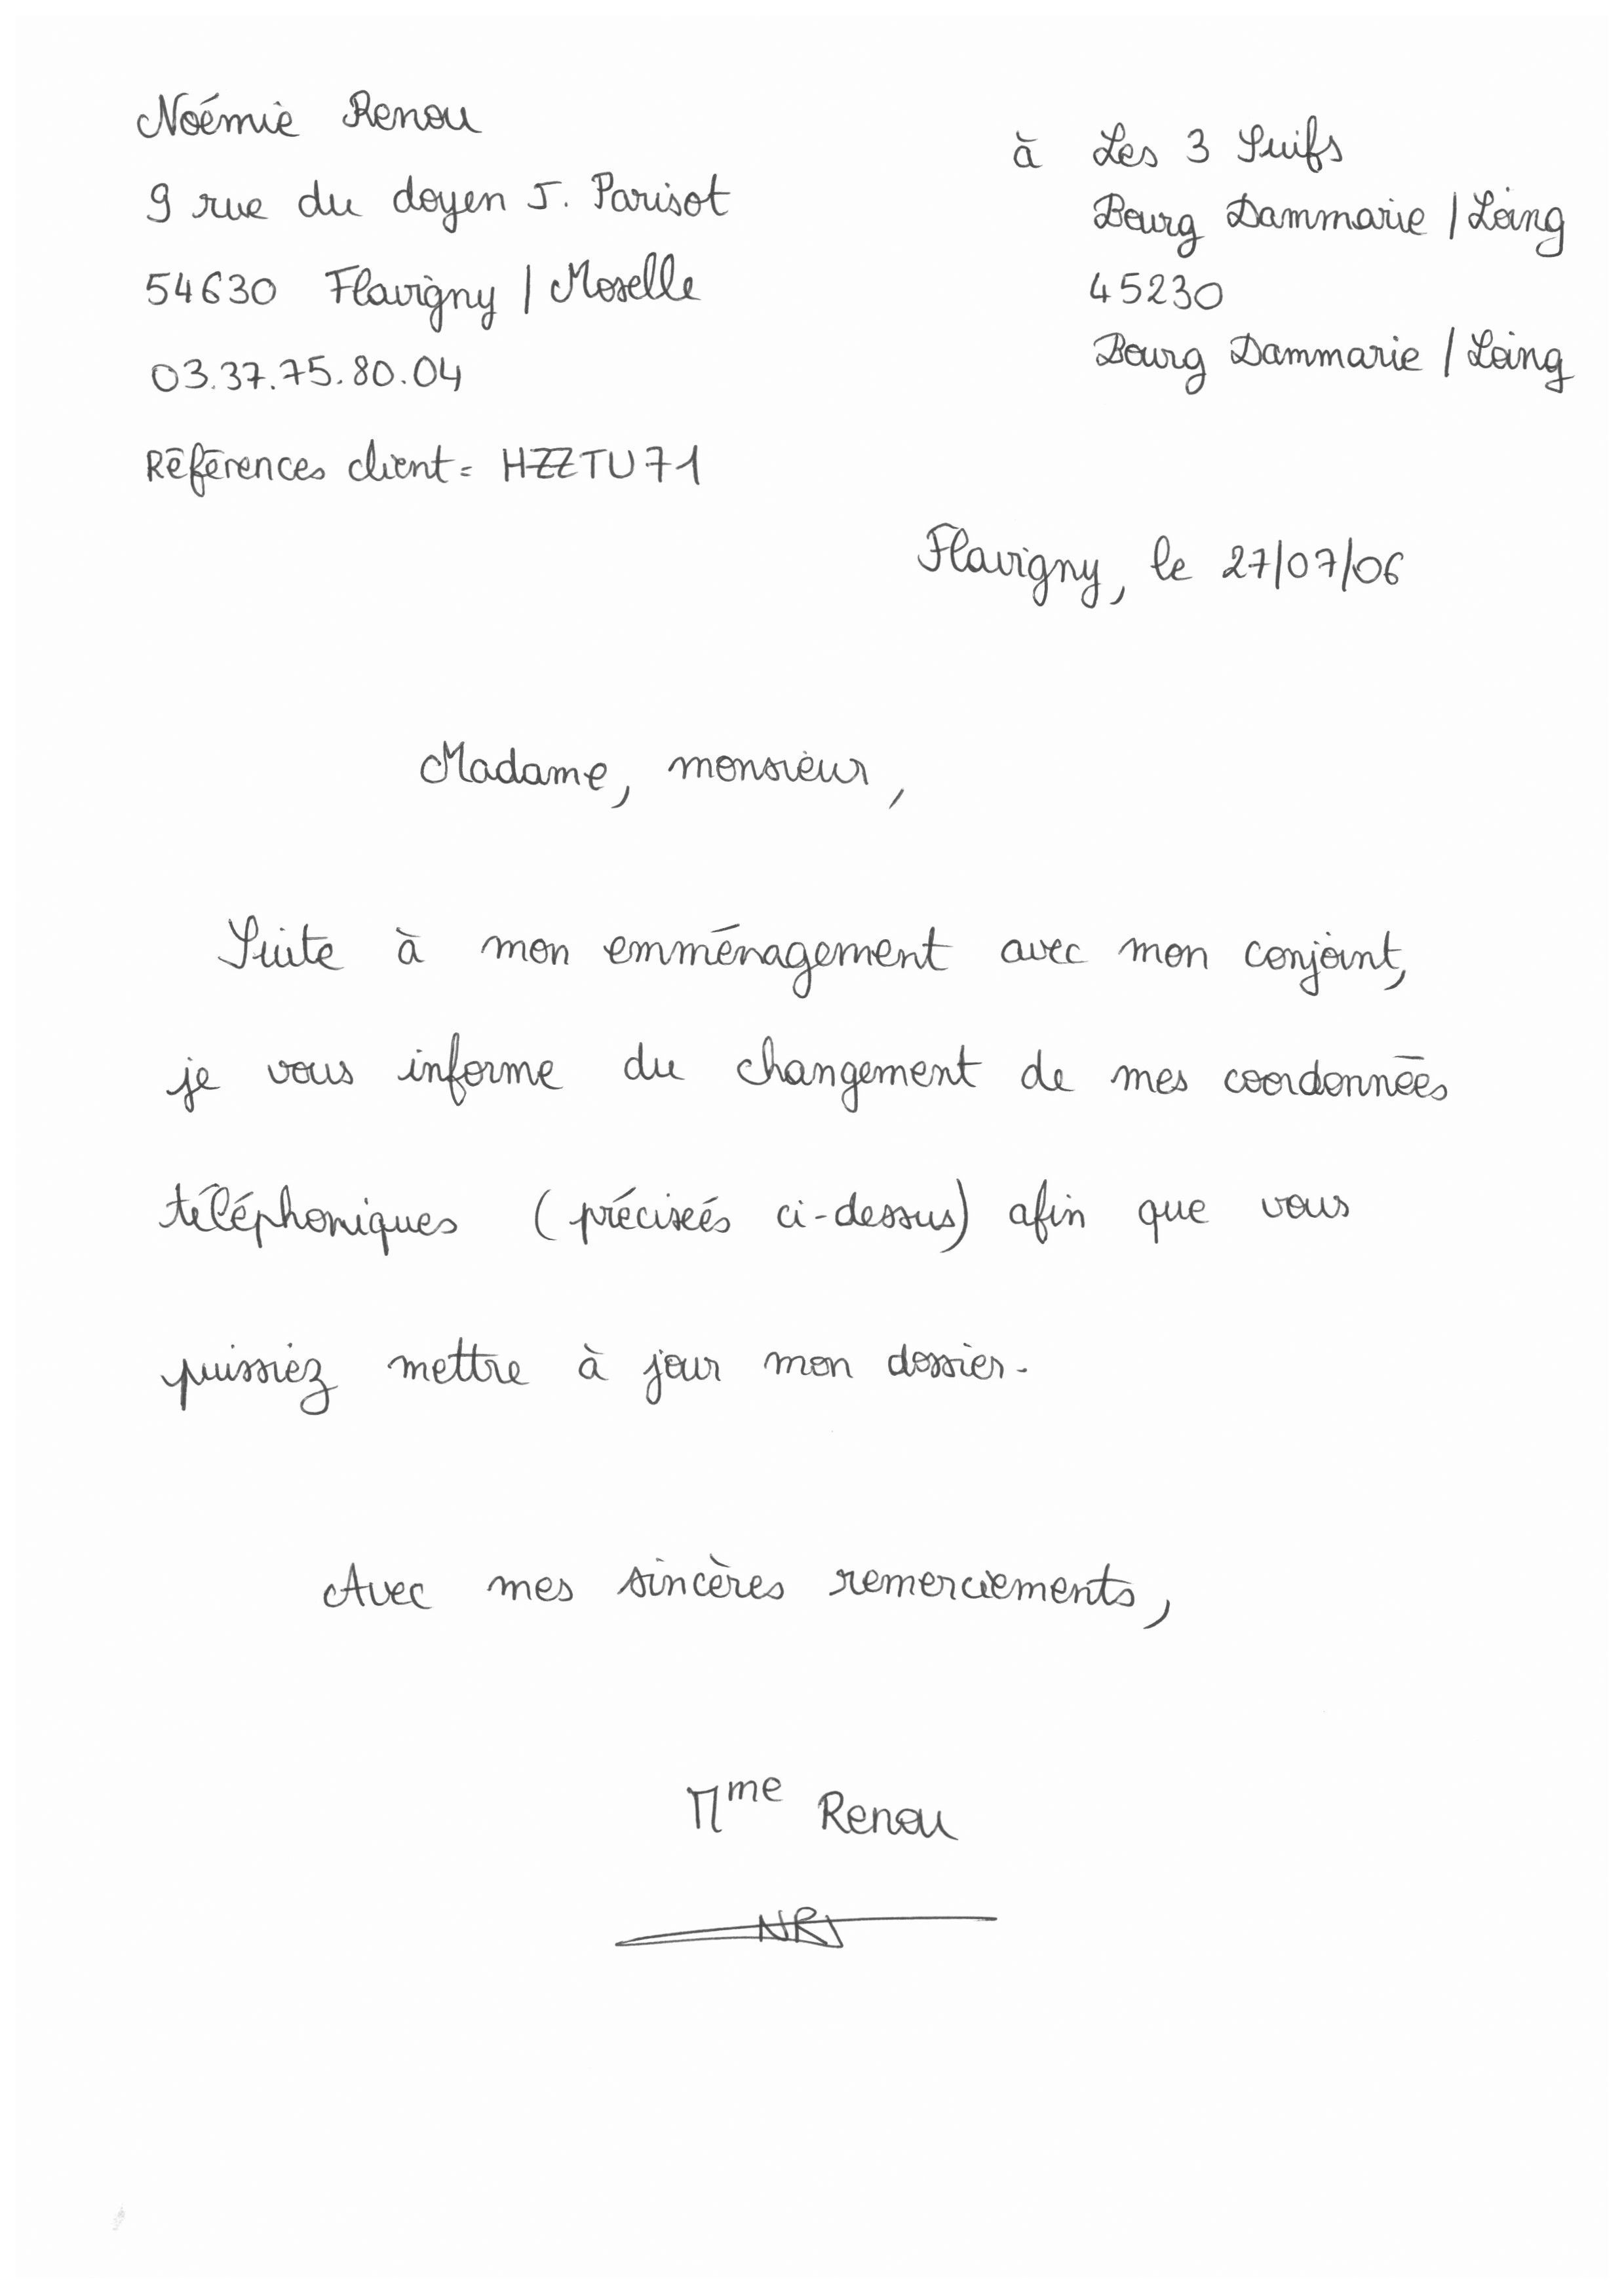 Noémie Renou
9 rue du doyen J. Parisot
54630 Flavigny / Moselle
03.37.75.80.04
Références client = HZZTU71
à Les 3 Suifs
Bourg Dammarie / Loing
45230
Bourg Dammarie / Loing
Flavigny, le 27/07/06
Madame, monsieur,
Suite à mon emménagement avec mon conjoint,
je vous informe du changement de mes coordonnées
téléphoniques (précisées ci-dessus) afin que vous
puissiez mettre à jour mon dossier.
Avec mes sincères remerciements,
Mme Renou
NR